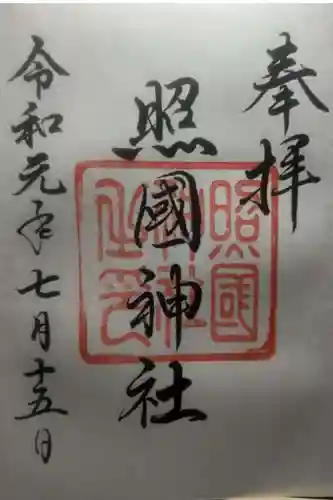 奉拝
照國神社
照国神社之印
令和元年七月十五日